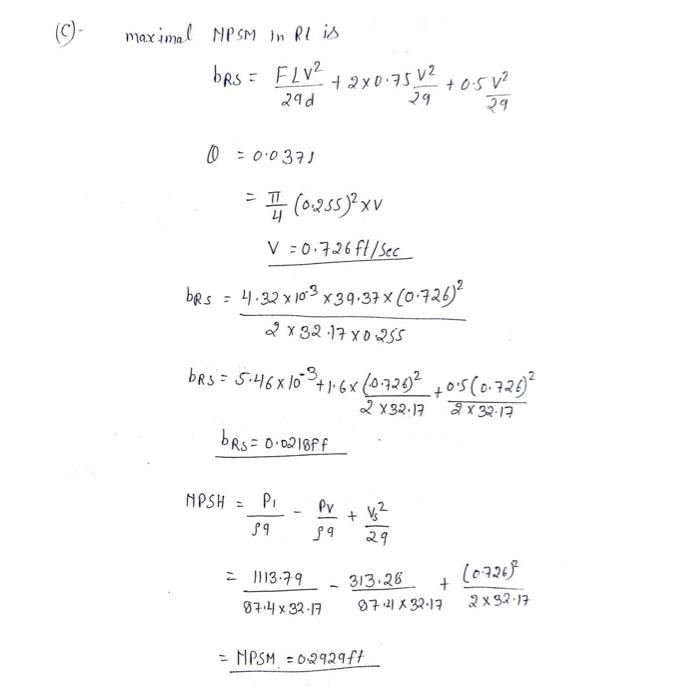 (C)- maximal NPSM in Rl is
bRS = FLV²/29d + 2×0.75 V²/29 + 0.5 V²/29
Q = 0.0371
= π/4 (0.255)² × V
V = 0.726 ft/sec
bRS = 4.32 × 10⁻³ × 39.37 × (0.726)² / 2 × 32.17 × 0.255
bRS = 5.46 × 10⁻³ + 1.6 × (0.726)² / 2 × 32.17 + 0.5 (0.726)² / 2 × 32.17
bRS = 0.0218 ff
NPSH = P₁/ρ9 - Pv/ρ9 + Vs²/29
= 1113.79 / 87.4 × 32.17 - 313.28 / 87.4 × 32.17 + (0.726)² / 2 × 32.17
= NPSM = 0.2929 ft